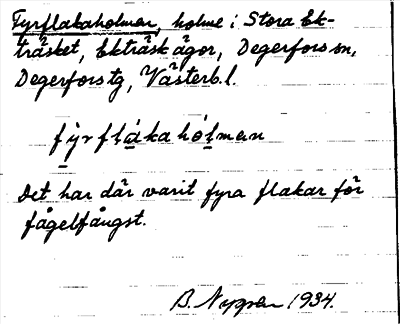 Fyrflakaholmen, holme i Stora Ek-
träsket, Ekträsk ägor, Degerfors sn,
Degerfors tg, Västerb. l.
fỳrfłákahółman
Det har där varit fyra flakar för
fågelfångst.
B. Nygren 1934.